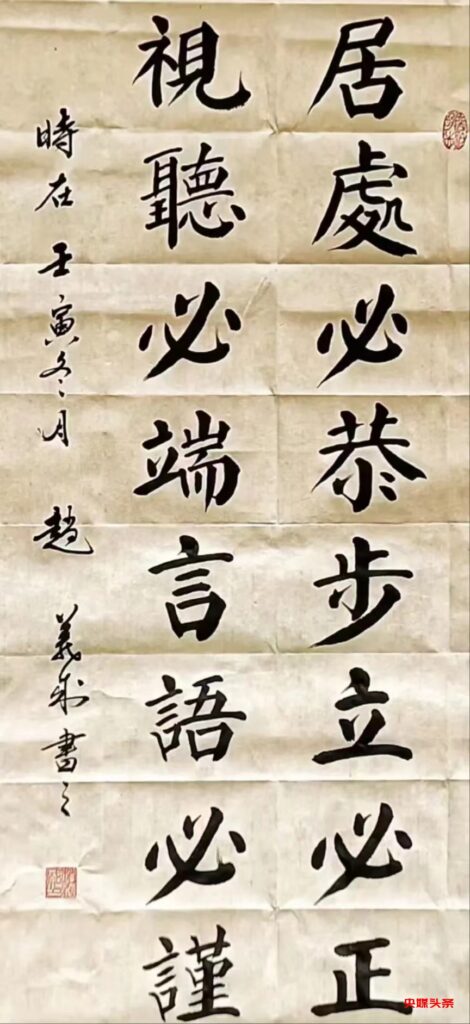 居處必恭步立必正
視聽必端言語必謹
時在壬寅冬月 趙義成書之
央媒头条